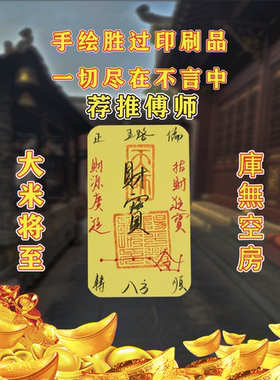 手绘胜过印刷品
一切尽在不言中
荐推傅师
大米将至
庫無空房
正 五路 偏
財源廣進
財寶
招財進寶
轉 八方 順